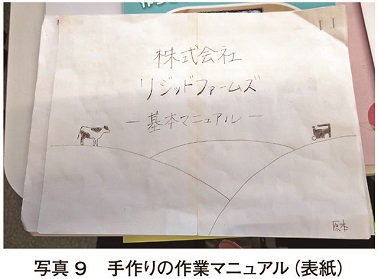 株式会社
リジッドファームズ
－基本マニュアル－
原本
写真９　手作りの作業マニュアル（表紙）